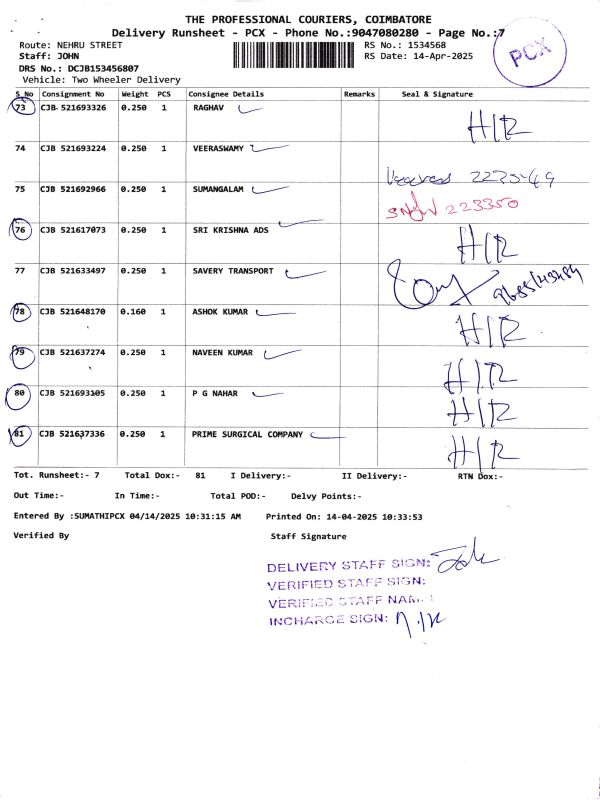 THE PROFESSIONAL COURIERS, COIMBATORE
Delivery Runsheet - PCX - Phone No.:9047080280 - Page No.:7
PCX
Route: NEHRU STREET RS No.: 1534568
Staff: JOHN RS Date: 14-Apr-2025
DRS No.: DCJB153456807
Vehicle: Two Wheeler Delivery
S_No Consignment No Weight PCS Consignee Details Remarks Seal & Signature
73 CJB 521693326 0.250 1 RAGHAV H/R
74 CJB 521693224 0.250 1 VEERASWAMY
75 CJB 521692966 0.250 1 SUMANGALAM 223350
76 CJB 521617073 0.250 1 SRI KRISHNA ADS H/R
77 CJB 521633497 0.250 1 SAVERY TRANSPORT
78 CJB 521648170 0.160 1 ASHOK KUMAR H/R
79 CJB 521637274 0.250 1 NAVEEN KUMAR H/R
80 CJB 521693105 0.250 1 P G NAHAR H/R
81 CJB 521637336 0.250 1 PRIME SURGICAL COMPANY H/R
Tot. Runsheet:- 7 Total Dox:- 81 I Delivery:- II Delivery:- RTN Dox:-
Out Time:- In Time:- Total POD:- Delvy Points:-
Entered By :SUMATHIPCX 04/14/2025 10:31:15 AM Printed On: 14-04-2025 10:33:53
Verified By Staff Signature
DELIVERY STAFF SIGN:
VERIFIED STAFF SIGN:
VERIFIED STAFF NAME:
INCHARGE SIGN: